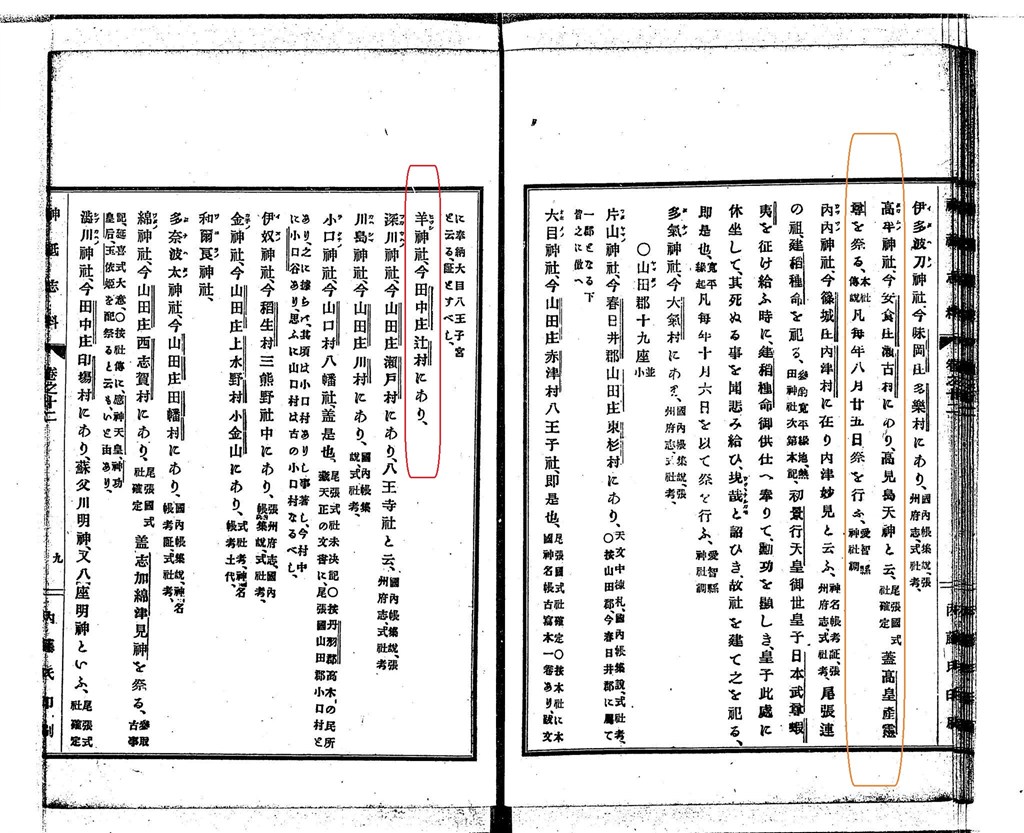 伊多波刀神社、今味岡庄多樂村にあり、國內帳集說、張州府志、式社考、
高牟神社、今安食庄瀨古村にあり高見島天神と云、尾張國式社確定 蓋高皇產靈
尊を祭る、本社傳說 凡每年八月廿五日祭を行ふ、愛智縣神社調
內內神社、今篠城庄內津村に在り內津妙見と云ふ、神名帳考証、張州府志式社考、 尾張連
の祖、建稻種命を祀る、
田神社次第本記、 初景行天皇御世皇子日本武尊蝦
夷を征け給ふ時に、建稻種命御供仕へ奉りて、勳功を顯しき、皇子此處に
休坐して、其死ぬる事を聞悲み給ひ、現哉と詔ひき、故社を建て之を祀る、
即是也、寬平緣起 凡每年十月六日を以て祭を行ふ、愛智縣神社調
多氣神社、今大氣村にある、國內帳集說、張州府志、式社考、
〇山田郡十九座並小
片山神社、今春日井郡山田庄東杉村にあり、天文中棟札、國內帳集說、式社考、〇按山田郡今春日井郡に屬て
一郡となる下
皆之に倣へ
大目神社、今山田庄赤津村八王子社、即是也、尾張國式社確定〇按本社に本國神名帳古寫本一卷あり、跋文
に奉納大目八王子宮
と云る、証とすべし、
羊神社、今田中庄辻村にあり、
深川神社、今山田庄瀨戶村にあり、八王寺社と云、國內帳集說、張州府志、式社考
川島神社、今山田庄川村にあり、國內帳集說、式社考、
小口神社、今山口村八幡社蓋是也、尾張式社未決記〇按丹羽郡高木の民所藏天正の文書に、尾張國山田郡小口村と
あり、之に據らば、其頃は小口村ありし事著し、今村中
に小口谷あり、思ふに山口村は古の小口村なるべし、
伊奴神社、今稻生村三熊野社中にあり、張州府志、國內帳集說、式社考、
金神社、今山田庄上水野村小金山にあり、式社考、神名帳考土代、
和爾良神社、
多奈波太神社、今山田庄田幡村にあり、國內帳集說、神名帳考証、式社考、
綿神社、今山田庄西志賀村にあり、尾張國式社確定 蓋志加綿津見神を祭る、參取古事
記、延喜式大意〇按社傳に、應神天皇、神功
皇后、玉依姬を配祭ると云るもいと由あり、
澁川神社、今田中庄印場村にあり、蘇父川明神、又八座明神といふ、尾張式社確定
神祇志料 卷之十二 九 內藤氏印刷